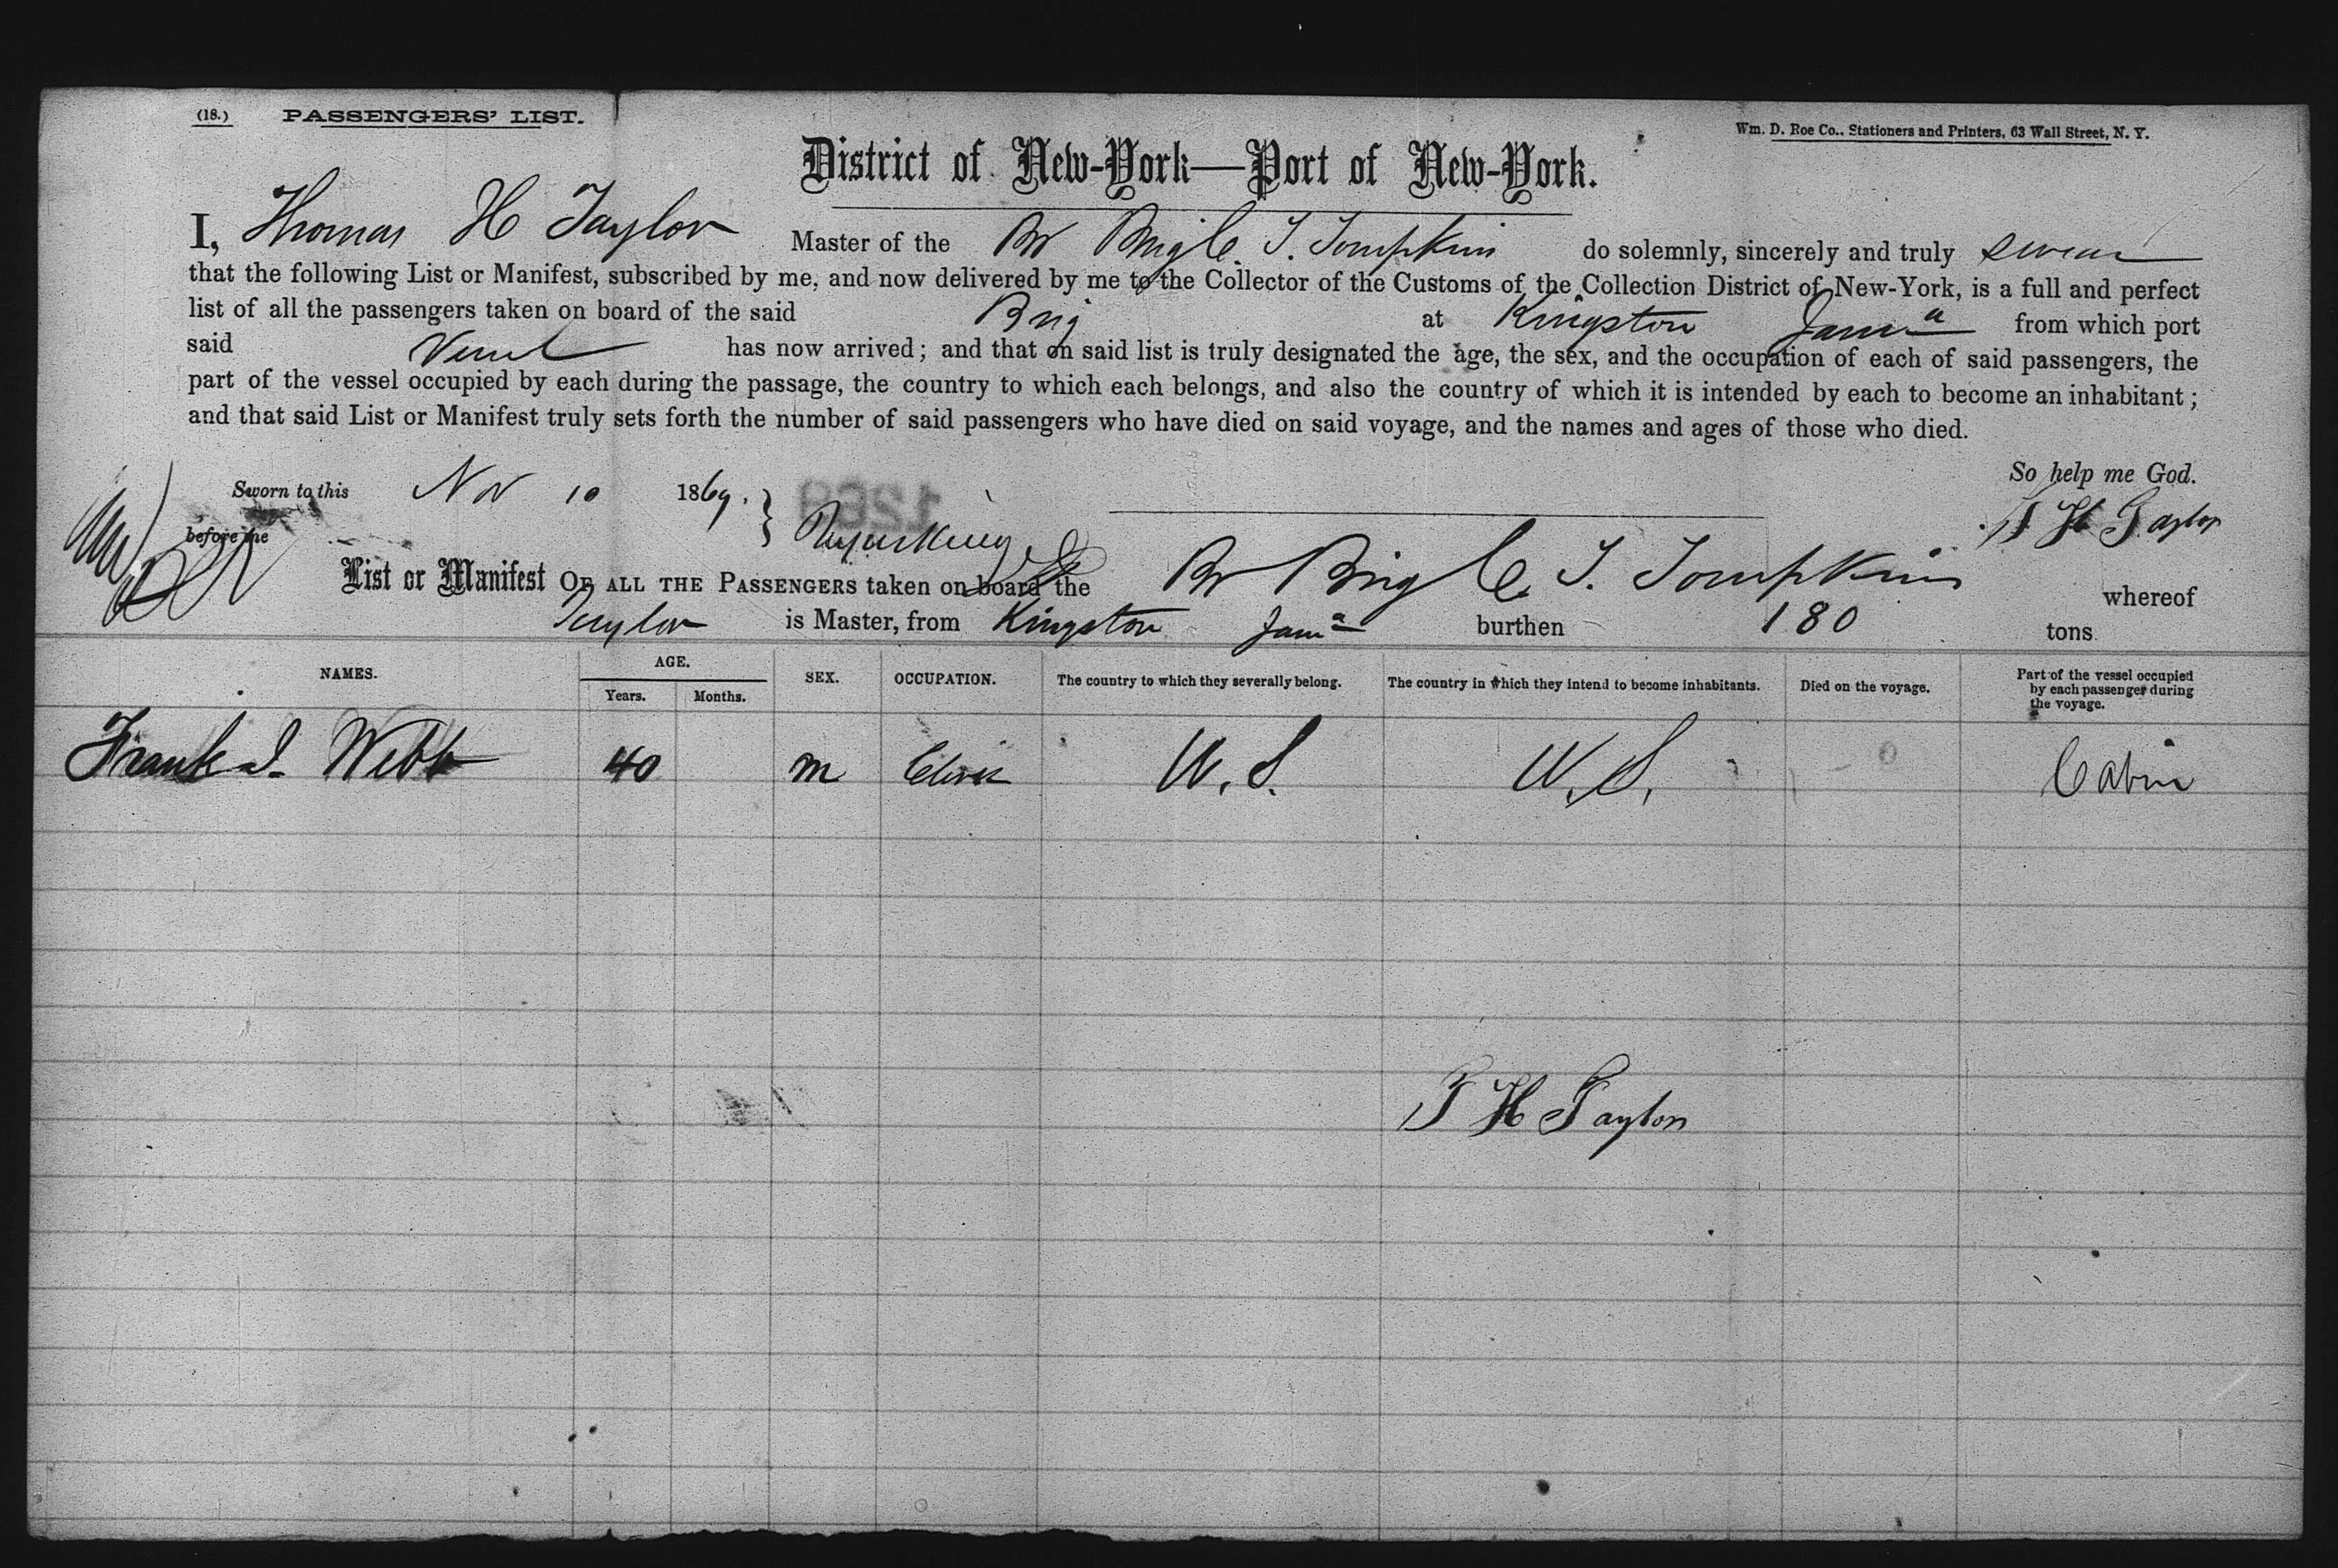 (18.) PASSENGERS' LIST.
Wm. D. Roe Co.. Stationers and Printers, 63 Wall Street, N. Y.
District of New-York—Port of New-York.
I, Thomas H Taylor Master of the Br Brig C. J. Tompkins do solemnly, sincerely and truly swear
that the following List or Manifest, subscribed by me, and now delivered by me to the Collector of the Customs of the Collection District of New-York, is a full and perfect
list of all the passengers taken on board of the said Brig at Kingston Jama from which port
said Vessel has now arrived; and that on said list is truly designated the age, the sex, and the occupation of each of said passengers, the
part of the vessel occupied by each during the passage, the country to which each belongs, and also the country of which it is intended by each to become an inhabitant;
and that said List or Manifest truly sets forth the number of said passengers who have died on said voyage, and the names and ages of those who died.
So help me God.
Sworn to this Nov 10 1869. }
T H Taylor
before me
List or Manifest OF ALL THE PASSENGERS taken on board the Br Brig C. J. Tompkins whereof
Taylor is Master, from Kingston Jama burthen 180 tons
NAMES. AGE. Years. Months. SEX. OCCUPATION. The country to which they severally belong. The country in which they intend to become inhabitants. Died on the voyage. Part of the vessel occupied by each passenger during the voyage.
Frank J. Webb 40 m Clerk U. S. U. S. Cabin
T H Taylor